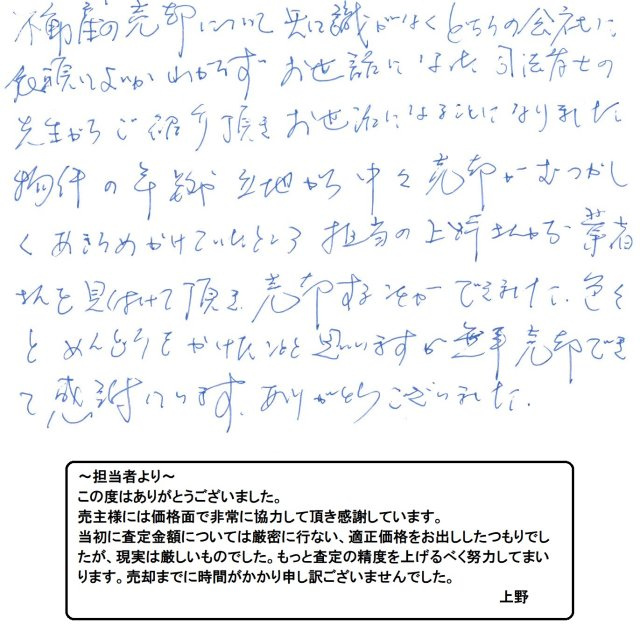 不動産の売却について 知識がなく どちらの会社に
依頼してよいか わからず お世話になった 司法書士の
先生から ご紹介頂き お世話になることになりました
物件の年数や立地から 中々 売却がむつかし
くあきらめかけていたところ 担当の上野さんから 業者
さんを見つけて頂き 売却する事ができました。色々
とめんどうをかけたいと思いますが 無事売却でき
て感謝しています。ありがとうございました。
～担当者より～
この度はありがとうございました。
売主様には価格面で非常に協力して頂き感謝しています。
当初に査定金額については厳密に行ない、適正価格をお出ししたつもりでし
たが、現実は厳しいものでした。もっと査定の精度を上げるべく努力してまい
ります。売却までに時間がかかり申し訳ございませんでした。
上野